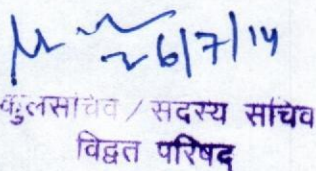 26/7/14
कुलसचिव / सदस्य सचिव
विद्वत परिषद्